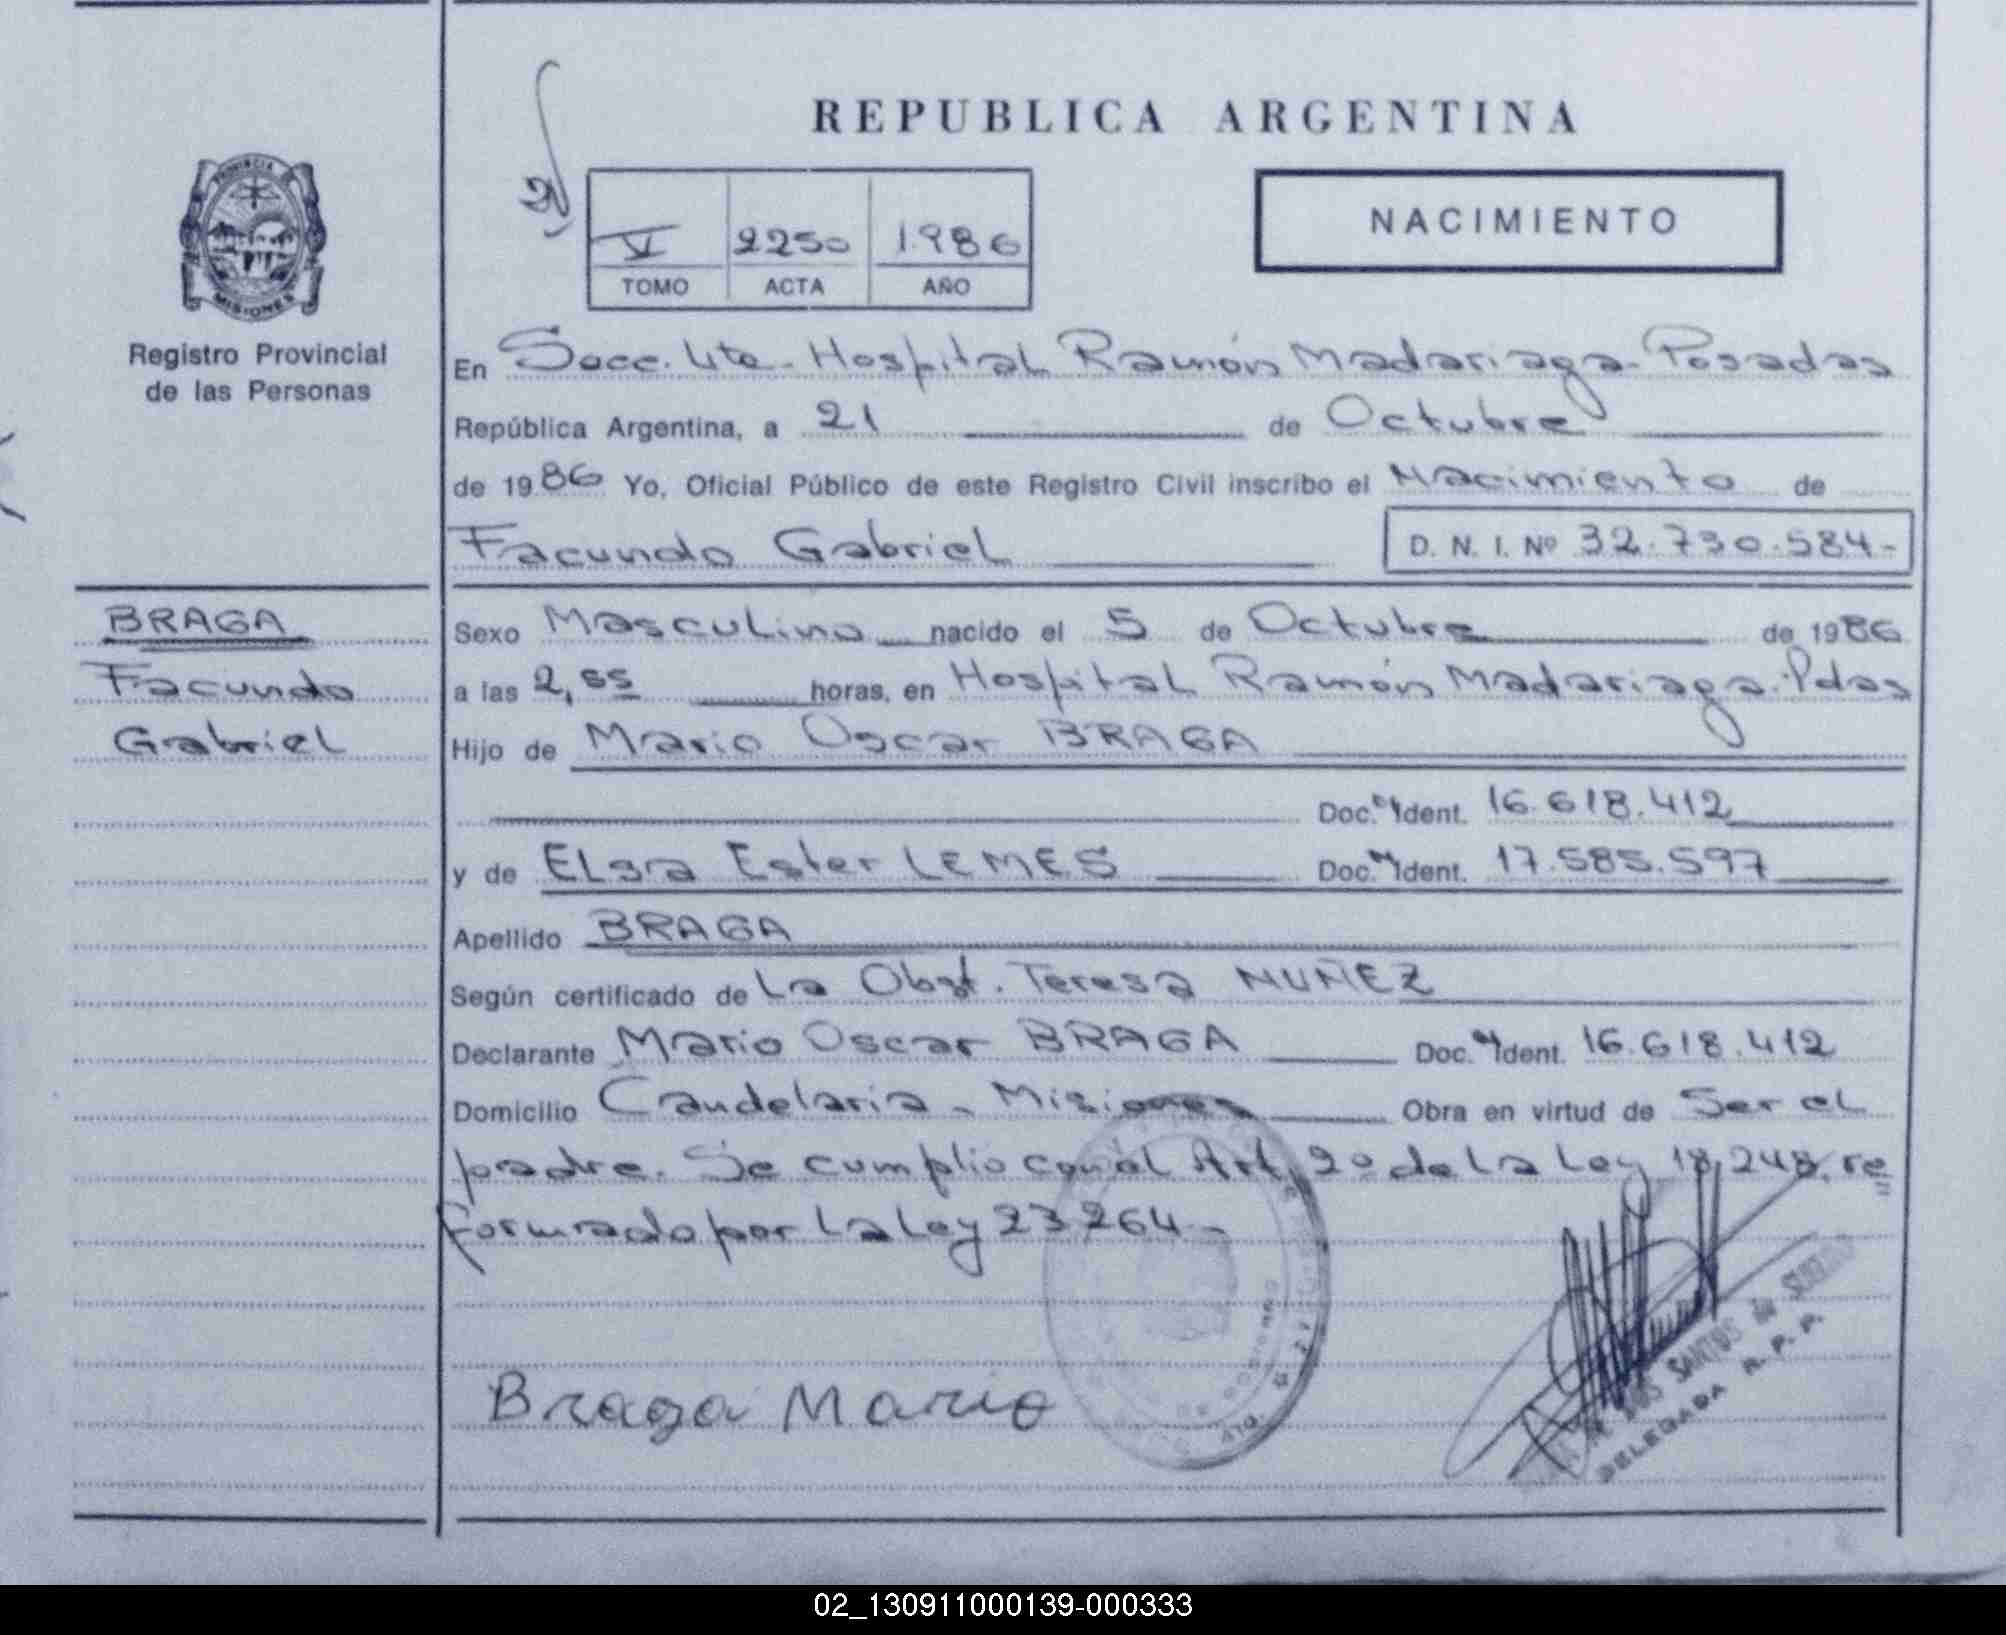 REPUBLICA ARGENTINA
NACIMIENTO
V 2250 1986
TOMO ACTA AÑO
PROVINCIA DE
MISIONES
Registro Provincial
de las Personas
En Secc. 4ta - Hospital Ramón Madariaga - Posadas
República Argentina, a 21 de Octubre
de 1986 Yo, Oficial Público de este Registro Civil inscribo el Nacimiento de
Facundo Gabriel D. N. I. Nº 32.730.584-
BRAGA
Facundo
Gabriel
Sexo Masculino nacido el 5 de Octubre de 1986
a las 2,55 horas, en Hospital Ramón Madariaga - Pdas
Hijo de Mario Oscar BRAGA
Doc. Ident. 16.618.412
y de Elsa Ester LEMES Doc. Ident. 17.585.597
Apellido BRAGA
Según certificado de La Obst. Teresa NUÑEZ
Declarante Mario Oscar BRAGA Doc. Ident. 16.618.412
Domicilio Candelaria - Misiones Obra en virtud de Ser el
padre. Se cumplio con el Art. 2º de la Ley 18.248, re
formado por la Ley 23264-
Braga Mario
DOS SANTOS de
DELEGADA R. P. P.
02_130911000139-000333